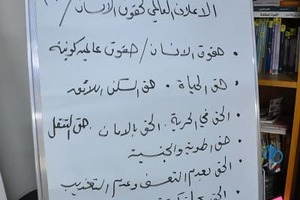 الاعلان العالمي لحقوق الانسان /
• حقوق الانسان / حقوق عالمية كونية
• حق الحياة • حق السكن اللائق
• الحق في الحرية . الحق بالامان . حق التنقل
• حق الهوية والجنسية
• الحق بعدم التعسف وعدم التعذيب